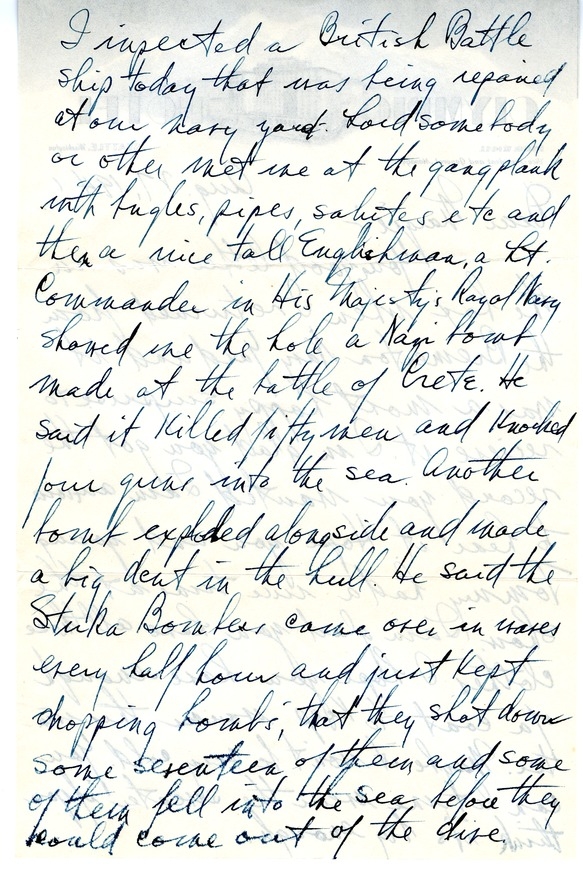 I inspected a British Battle
ship today that was being repaired
at our navy yard. Lord somebody
or other met me at the gangplank
with bugles, pipes, salutes etc and
then a nice tall Englishman, a Lt.
Commander in His Majesty's Royal Navy
showed me the hole a Nazi bomb
made at the battle of Crete. He
said it killed fifty men and knocked
four guns into the sea. Another
bomb exploded alongside and made
a big dent in the hull. He said the
Stuka Bombers came over in waves
every half hour and just kept
dropping bombs, that they shot down
some seventeen of them and some
of them fell into the sea before they
could come out of the dive.